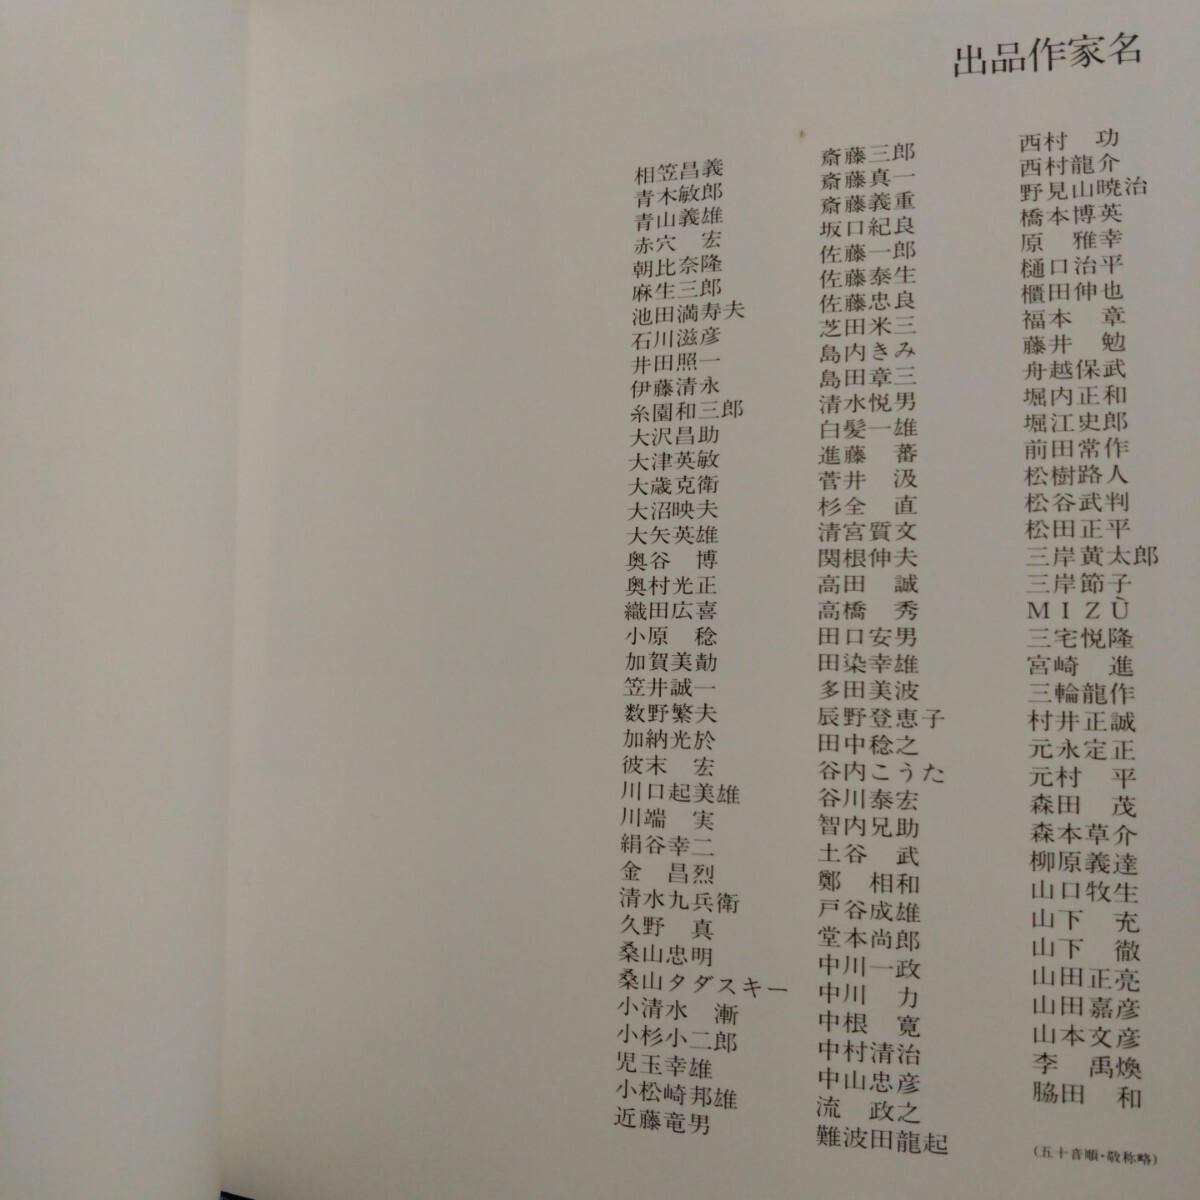 出品作家名
相笠昌義
青木敏郎
青山義雄
赤穴　宏
朝比奈隆
麻生三郎
池田満寿夫
石川滋彦
井田照一
伊藤清永
糸園和三郎
大沢昌助
大津英敏
大歳克衛
大沼映夫
大矢英雄
奥谷　博
奥村光正
織田広喜
小原　稔
加賀美勣
笠井誠一
数野繁夫
加納光於
彼末　宏
川口起美雄
川端　実
絹谷幸二
金　昌烈
清水九兵衛
久野　真
桑山忠明
桑山タダスキー
小清水　漸
小杉小二郎
児玉幸雄
小松崎邦雄
近藤竜男
斎藤三郎
斎藤真一
斎藤義重
坂口紀良
佐藤一郎
佐藤泰生
佐藤忠良
芝田米三
島内きみ
島田章三
清水悦男
白髪一雄
進藤　蕃
菅井　汲
杉全　直
清宮質文
関根伸夫
高田　誠
高橋　秀
田口安男
田染幸雄
多田美波
辰野登恵子
田中稔之
谷内こうた
谷川泰宏
智内兄助
土谷　武
鄭　相和
戸谷成雄
堂本尚郎
中川一政
中川　力
中根　寛
中村清治
中山忠彦
流　政之
難波田龍起
西村　功
西村龍介
野見山暁治
橋本博英
原　雅幸
樋口治平
櫃田伸也
福本　章
藤井　勉
舟越保武
堀内正和
堀江史郎
前田常作
松樹路人
松谷武判
松田正平
三岸黄太郎
三岸節子
ＭＩＺÙ
三宅悦隆
宮崎　進
三輪龍作
村井正誠
元永定正
元村　平
森田　茂
森本草介
柳原義達
山口牧生
山下　充
山下　徹
山田正亮
山田嘉彦
山本文彦
李　禹煥
脇田　和
（五十音順・敬称略）